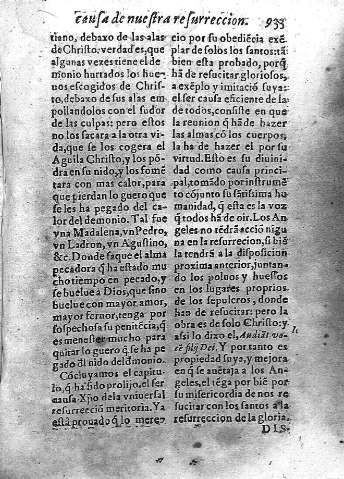 causa de nuestra resurreccion. 933
tiano, debaxo de las alas
de Christo; verdad es, que
algunas vezes tiene el de
monio hurtados los hue-
uos escogidos de Chris-
to, debaxo de sus alas em
pollandolos con el sudor
de las culpas: pero estos
no los sacara a la otra vi-
da, que se los cogera el
Aguila Christo, y los põ-
dra en su nido, y los fomẽ
tara con mas calor, para
que pierdan lo guero que
se les ha pegado del ca-
lor del demonio. Tal fue
vna Madalena, vn Pedro,
vn Ladron, vn Agustino,
&c. Donde saque el alma
pecadora q̃ ha estado mu
cho tiempo en pecado, y
se buelue a Dios, que sino
buelue con mayor amor,
mayor feruor, tenga por
sospechosa su penitẽcia, q̃
es menester mucho para
quitar lo guero q̃ se ha pe
gado al nido del demonio.
Cõcluyamos el capitu-
lo, q̃ ha sido prolijo, el ser
causa Xp̃o de la vniuersal
resurrecciõ meritoria. Ya
està prouado q̃ lo mere-
cio por su obediẽcia exẽ-
plar de solos los santos: tã
bien esta probado, porq̃
hà de resucitar gloriosos,
a exẽplo y imitaciõ suya:
el ser causa eficiente de la
de todos, consiste en que
la reunion q̃ hã de hazer
las almas cõ los cuerpos,
la ha de hazer el por su
virtud. Esto es su diuini-
dad como causa princi-
pal, tomãdo por instrumẽ
to cõjunto su sãtissima hu
manidad, q̃ esta es la voz
q̃ todos hã de oir. Los An-
geles no tẽdrã acciõ nigu
na en la resurrecion, si biẽ
la tendrà a la disposicion
proxima anterior, juntan-
do los poluos y huessos
en los lugares proprios
de los sepulcros, donde
han de resucitar: pero la
obra es de solo Christo: y
assi lo dixo el, Audiẽt vo-
cẽ filij Dei. Y por tanto es
propiedad suya, y mejora
en q̃ se auẽtaja a los An-
geles, el tẽga por biẽ por
su misericordia de nos re-
sucitar con los santos à la
resurreccion de la gloria.
DIS-